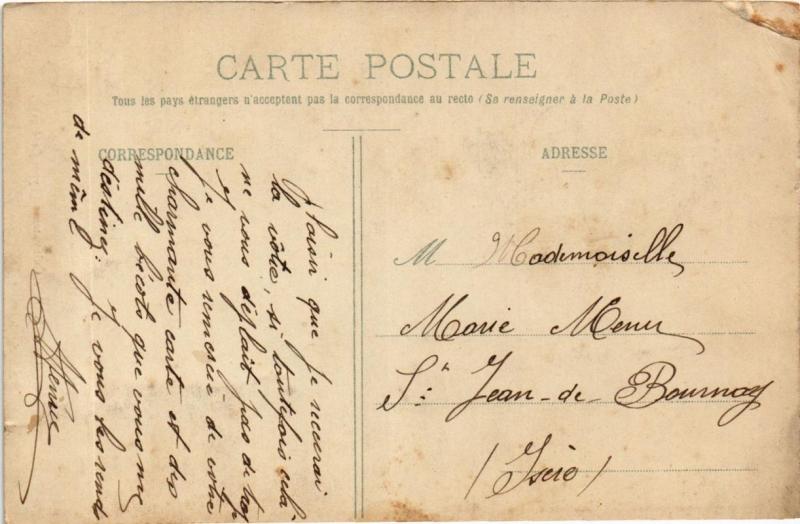 CARTE POSTALE
Tous les pays étrangers n'acceptent pas la correspondance au recto (Se renseigner à la Poste)
CORRESPONDANCE
plaisir que je recevrai
la vôtre, si toutefois cela
ne vous déplait pas de trop
je vous remercie de votre
charmante carte et des
mille bécots que vous me
destinez: je vous les rends
de même
ADRESSE
M Mademoiselle
Marie
St Jean-de-Bournay
(Isère)